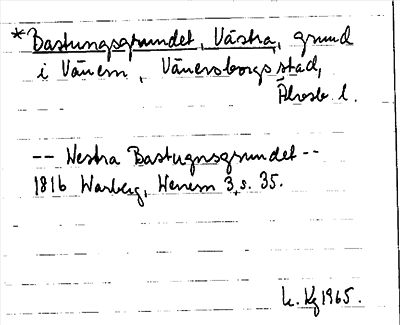 *Bastungsgrundet, Västra, grund
i Vänern, Vänersborgs stad,
Älvsb. l.
-- Westra Bastugnsgrundet --
1816 Warberg, Wenern 3, s. 35.
L. Kg 1965.